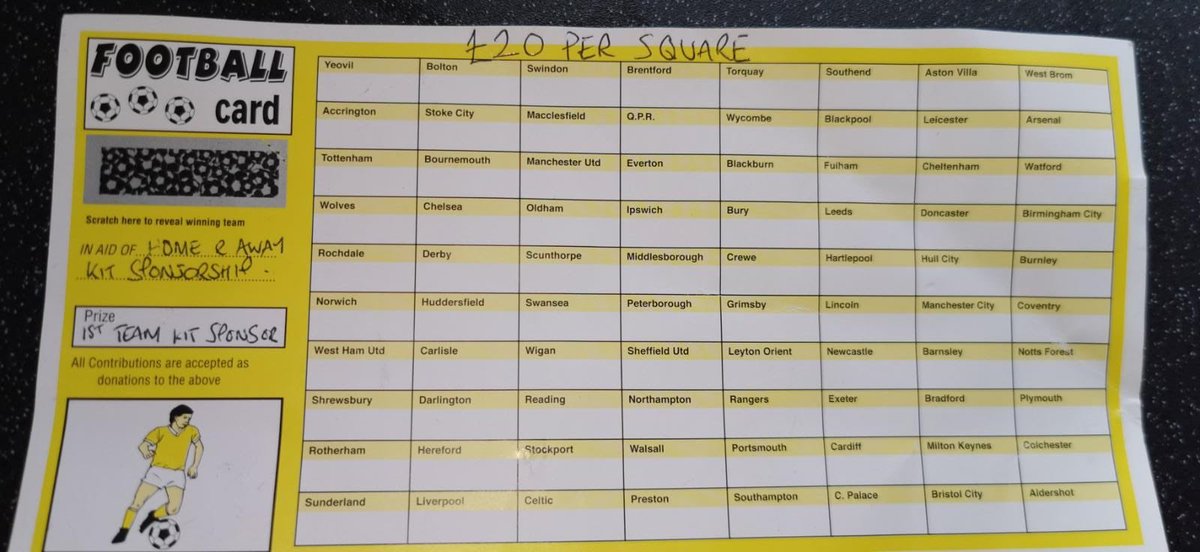 £20 PER SQUARE
FOOTBALL
card
Scratch here to reveal winning team
IN AID OF HOME & AWAY
KIT SPONSORSHIP.
Prize
1ST TEAM KIT SPONSOR
All Contributions are accepted as
donations to the above
Yeovil Bolton Swindon Brentford Torquay Southend Aston Villa West Brom
Accrington Stoke City Macclesfield Q.P.R. Wycombe Blackpool Leicester Arsenal
Tottenham Bournemouth Manchester Utd Everton Blackburn Fulham Cheltenham Watford
Wolves Chelsea Oldham Ipswich Bury Leeds Doncaster Birmingham City
Rochdale Derby Scunthorpe Middlesborough Crewe Hartlepool Hull City Burnley
Norwich Huddersfield Swansea Peterborough Grimsby Lincoln Manchester City Coventry
West Ham Utd Carlisle Wigan Sheffield Utd Leyton Orient Newcastle Barnsley Notts Forest
Shrewsbury Darlington Reading Northampton Rangers Exeter Bradford Plymouth
Rotherham Hereford Stockport Walsall Portsmouth Cardiff Milton Keynes Colchester
Sunderland Liverpool Celtic Preston Southampton C. Palace Bristol City Aldershot